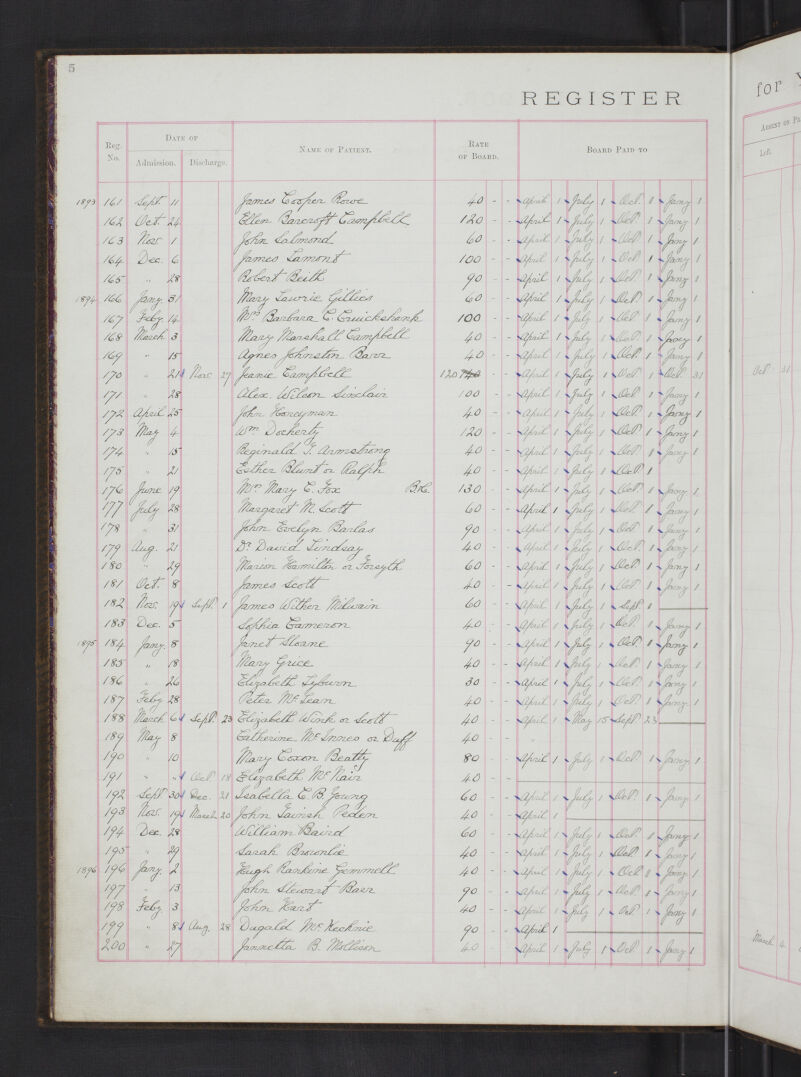 5
REGISTER
for
Reg. No. DATE OF Admission. Discharge. NAME OF PATIENT. RATE OF BOARD. BOARD PAID TO
Left.
1893 161 Sept 11 James Cooper Rowe 40 - - April 1 July 1 Oct. 1 Jany 1
162 Oct. 24 Ellen Bancroft Campbell 120 - - April 1 July 1 Oct. 1 Jany 1
163 Nov. 1 John Salmond 60 - - April 1 July 1 Oct. 1 Jany 1
164 Dec. 6 James Lamont 100 - - April 1 July 1 Oct. 1 Jany 1
165 " 28 Robert Beith 90 - - April 1 July 1 Oct. 1 Jany 1
1894 166 Jany. 31 Mary Lawrie Gillies 60 - - April 1 July 1 Oct. 1 Jany 1
167 Feby. 14 Mrs Barbara C. Cruickshank 100 - - April 1 July 1 Oct. 1 Jany 1
168 March 3 Mary Marshall Campbell 40 - - April 1 July 1 Oct. 1 Jany 1
169 " 15 Agnes Johnston Barr 40 - - April 1 July 1 Oct. 1 Jany 1
170 " 21 Nov. 27 Jeanie Campbell 120 - - April 1 July 1 Oct. 1 Oct. 31 Oct. 31
171 " 28 Alex. Wilson Sinclair 100 - - April 1 July 1 Oct. 1 Jany 1
172 April 25 John Honeyman 40 - - April 1 July 1 Oct. 1 Jany 1
173 May 4 Wm Docherty 120 - - April 1 July 1 Oct. 1 Jany 1
174 " 15 Reginald T. Armstrong 40 - - April 1 July 1 Oct. 1 Jany 1
175 " 21 Esther Blunt or Ralph 40 - - April 1 July 1 Oct. 1
176 June 19 Mrs Mary C. Fox 130 - - April 1 July 1 Oct. 1 Jany 1
177 July 28 Margaret M. Scott 60 - - April 1 July 1 Oct. 1 Jany 1
178 " 31 John Evelyn Barlas 90 - - April 1 July 1 Oct. 1 Jany 1
179 Aug. 21 Dr. David Lindsay 40 - - April 1 July 1 Oct. 1 Jany 1
180 " 29 Marion Hamilton or Forsyth 60 - - April 1 July 1 Oct. 1 Jany 1
181 Oct. 8 James Scott 40 - - April 1 July 1 Oct. 1 Jany 1
182 Nov. 19 Sept. 1 James Wither Milwain 60 - - April 1 July 1 Sept 1
183 Dec. 5 Sophia Cameron 40 - - April 1 July 1 Oct. 1 Jany 1
1895 184 Jany. 8 Janet Sloane 90 - - April 1 July 1 Oct. 1 Jany 1
185 " 18 Mary Grice 40 - - April 1 July 1 Oct. 1 Jany 1
186 " 26 Elizabeth Lyburn 30 - - April 1 July 1 Oct. 1 Jany 1
187 Feby 28 Peter McLean 40 - - April 1 July 1 Oct. 1 Jany 1
188 March 6 Sept. 23 Elizabeth Wink or Scott 40 - - April 1 May 15 Sept 23
189 May 8 Catherine McInnes or Duff 40 - -
190 " 10 Mary Coxon Beatty 80 - - April 1 July 1 Oct. 1 Jany 1
191 " " Oct 18 Elizabeth McNair 40 - -
192 Sept 30 Dec. 21 Isabella C. B. Young 60 - - April 1 July 1 Oct. 1 Jany 1
193 Nov. 19 March 20 John Gairsh Peden 40 - - April 1
194 Dec. 28 William Baird 60 - - April 1 July 1 Oct. 1 Jany 1
195 " 29 Sarah Brownlie 40 - - April 1 July 1 Oct. 1 Jany 1
1896 196 Jany. 2 Hugh Rankine Gemmell 40 - - April 1 July 1 Oct. 1 Jany 1
197 " 13 John Stewart Baer 90 - - April 1 July 1 Oct. 1 Jany 1
198 Feby. 3 John Hart 40 - - April 1 July 1 Oct. 1 Jany 1
199 " 8 Aug. 28 Dugald McKechnie 90 - - April 1 March 4
200 " 27 Jannetta B. Mollison 40 - - April 1 July 1 Oct. 1 Jany 1